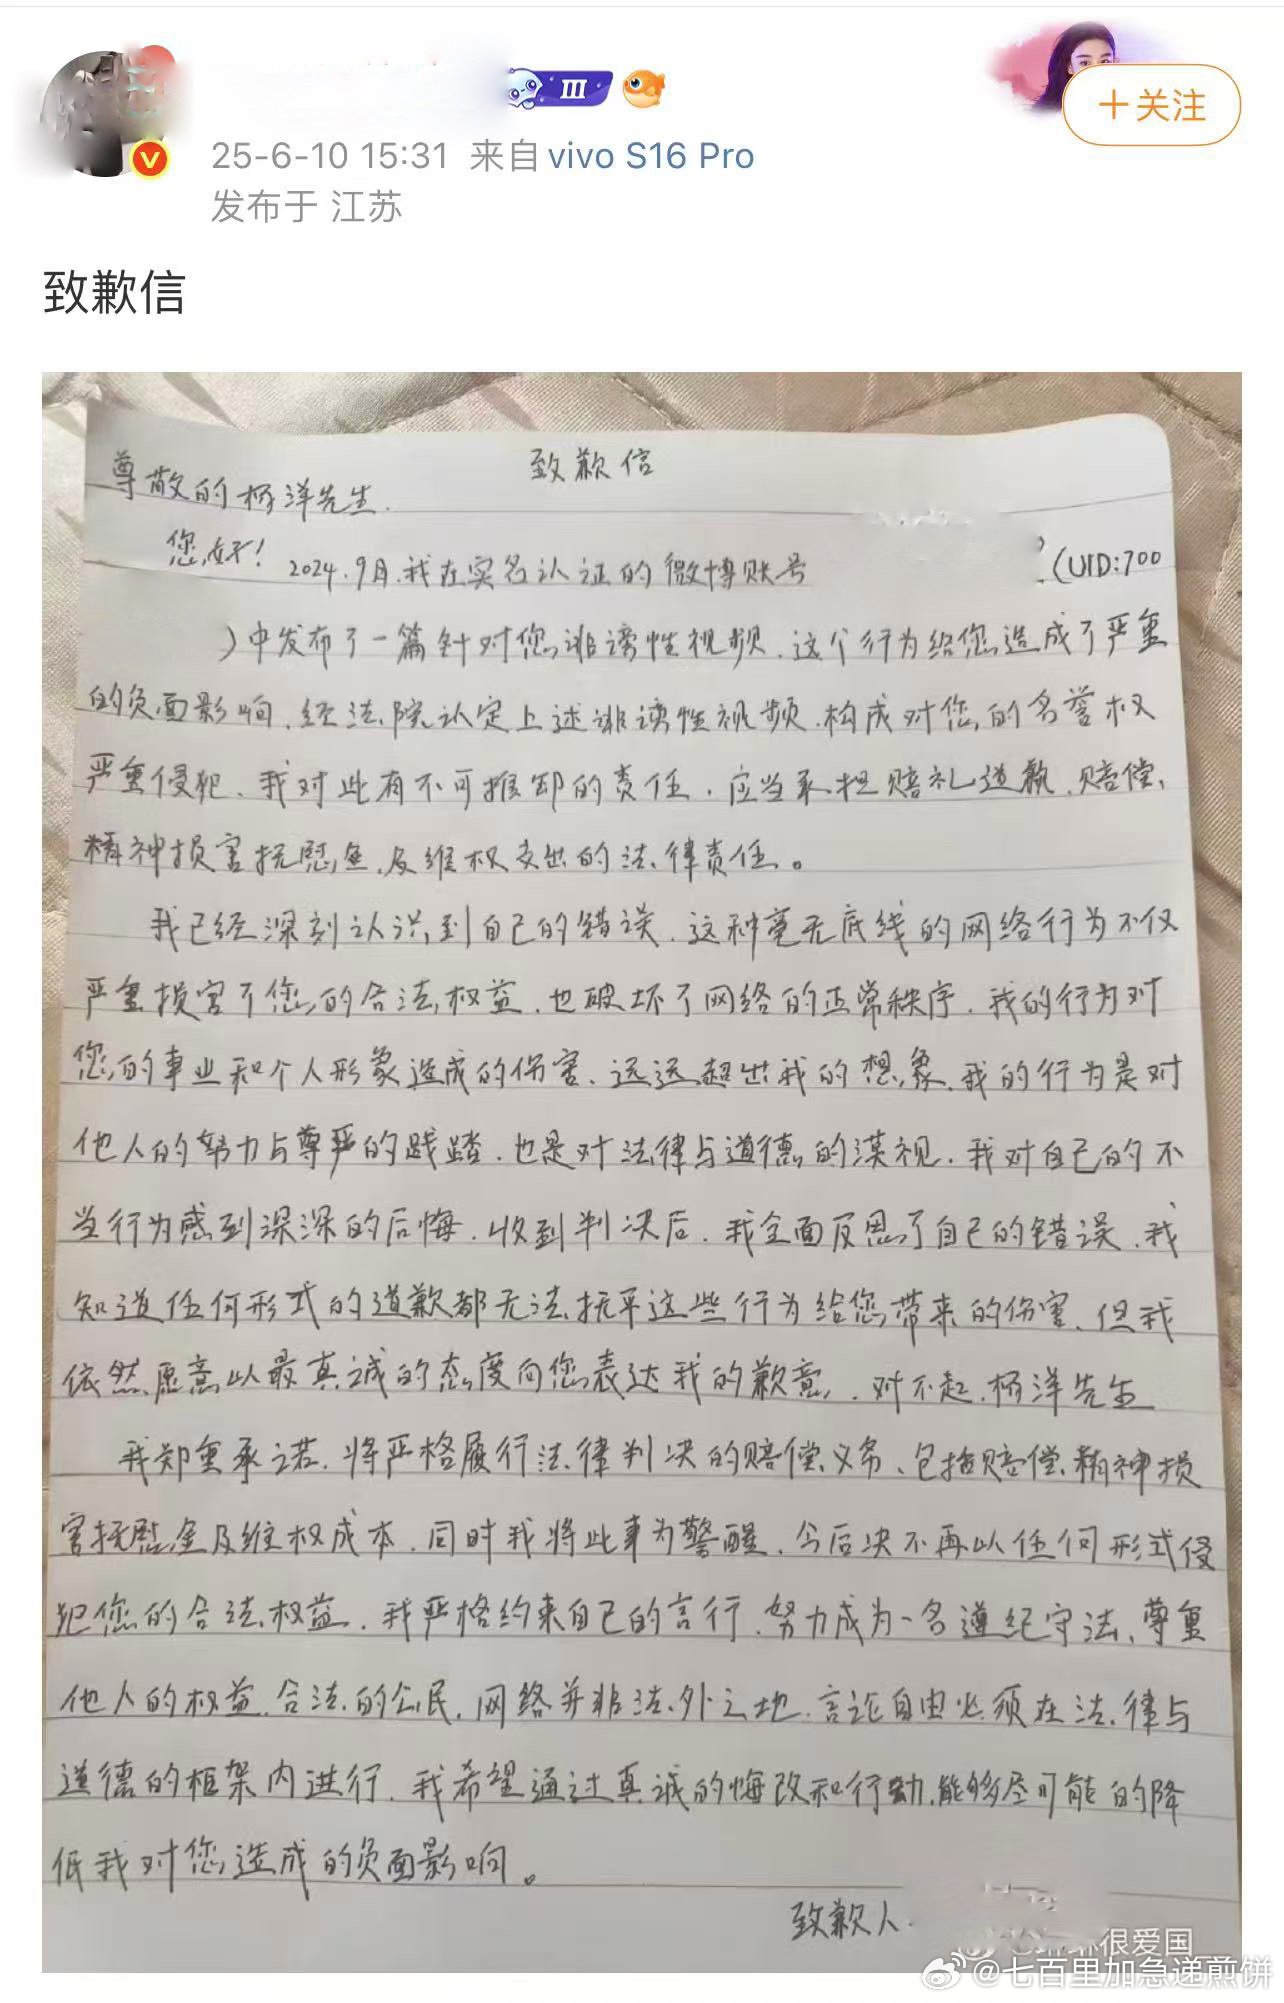 III
+关注
25-6-10 15:31 来自 vivo S16 Pro
发布于 江苏
致歉信
致歉信
尊敬的杨洋先生.
您好! 2024.9月.我在实名认证的微博账号 (UID:700
)中发布了一篇针对您诽谤性视频.这个行为给您造成了严重
的负面影响.经法院认定上述诽谤性视频.构成对您的名誉权
严重侵犯.我对此有不可推卸的责任.应当承担赔礼道歉.赔偿、
精神损害抚慰金.及维权支出的法律责任。
我已经深刻认识到自己的错误.这种毫无底线的网络行为不仅
严重损害了您的合法权益.也破坏了网络的正常秩序.我的行为对
您的事业和个人形象造成的伤害.远远超出我的想象.我的行为是对
他人的努力与尊严的践踏.也是对法律与道德的漠视.我对自己的不
当行为感到深深的后悔.收到判决后.我全面反思了自己的错误.我
知道任何形式的道歉都无法抚平这些行为给您带来的伤害.但我
依然愿意以最真诚的态度向您表达我的歉意.对不起.杨洋先生
我郑重承诺.将严格履行法律判决的赔偿义务、包括赔偿.精神损
害抚慰金及维权成本.同时我将此事为警醒.今后决不再以任何形式侵
犯您的合法权益.我严格约束自己的言行.努力成为一名遵纪守法、尊重
他人的权益.合法的公民.网络并非法外之地.言论自由必须在法律与
道德的框架内进行.我希望通过真诚的悔改和行动.能够尽可能的降
低我对您造成的负面影响。
致歉人.
很爱国
@七百里加急递煎饼